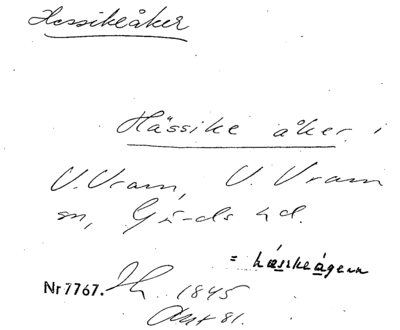 Hessikeåker
Hässike åker i
V. Vram, V. Vram
sn, Gärds hd.
= hässkeågenn
Nr 7767. 1845
Akt 81.